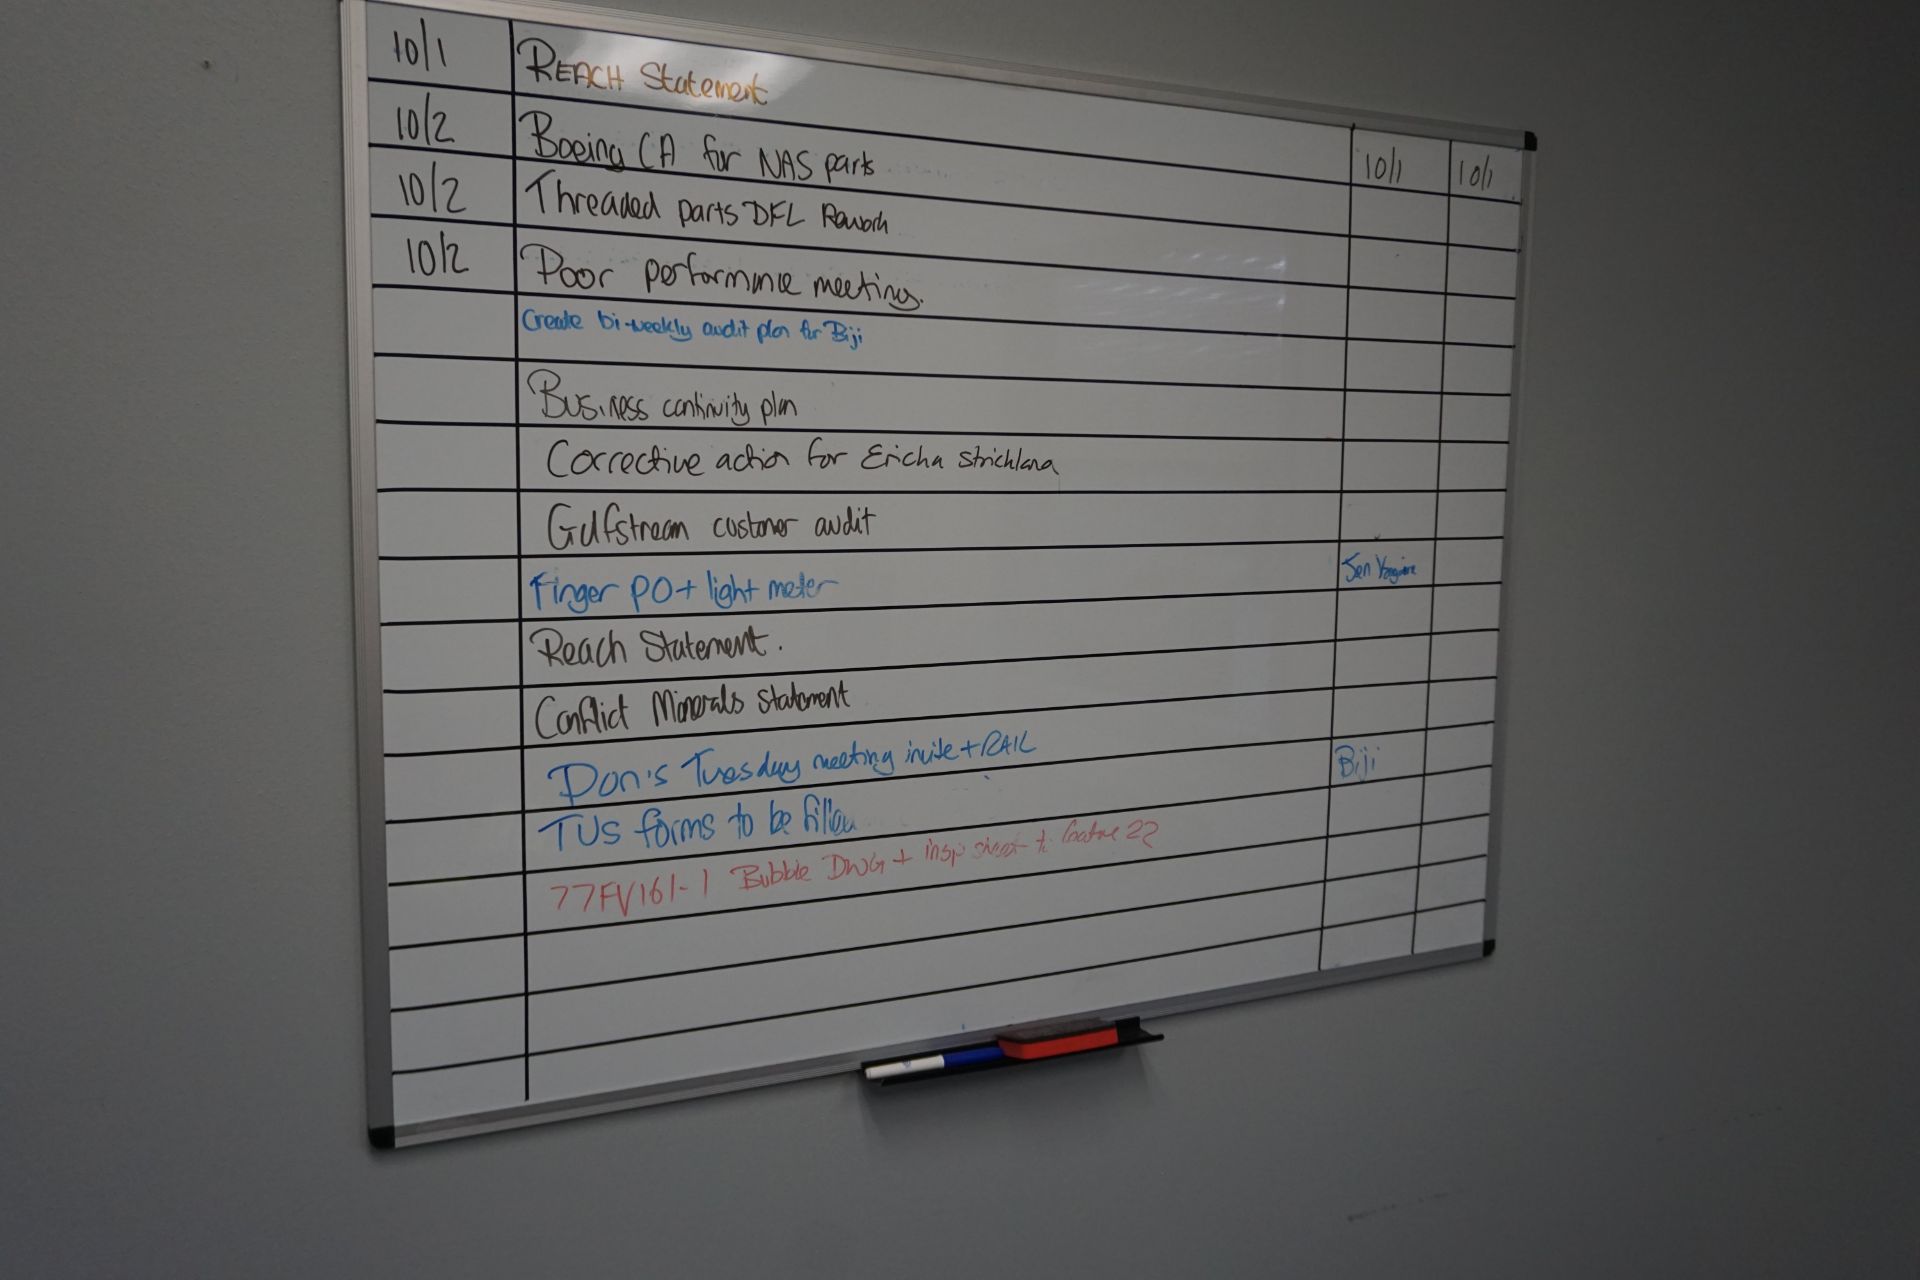 10/1 REACH Statement 10/1 10/1
10/2 Boeing CA for NAS parts
10/2 Threaded parts DFL Rework
10/2 Poor performance meetings.
Create bi-weekly audit plan for Biji
Business continuity plan
Corrective action for Ericha Strickland
Gulfstream customer audit
Finger PO + light meter Jen
Reach Statement.
Conflict Minerals statement
Don's Tuesday meeting invite + RAIL Biji
TUS forms to be
77FV161-1 Bubble DWG + insp sheet to 22